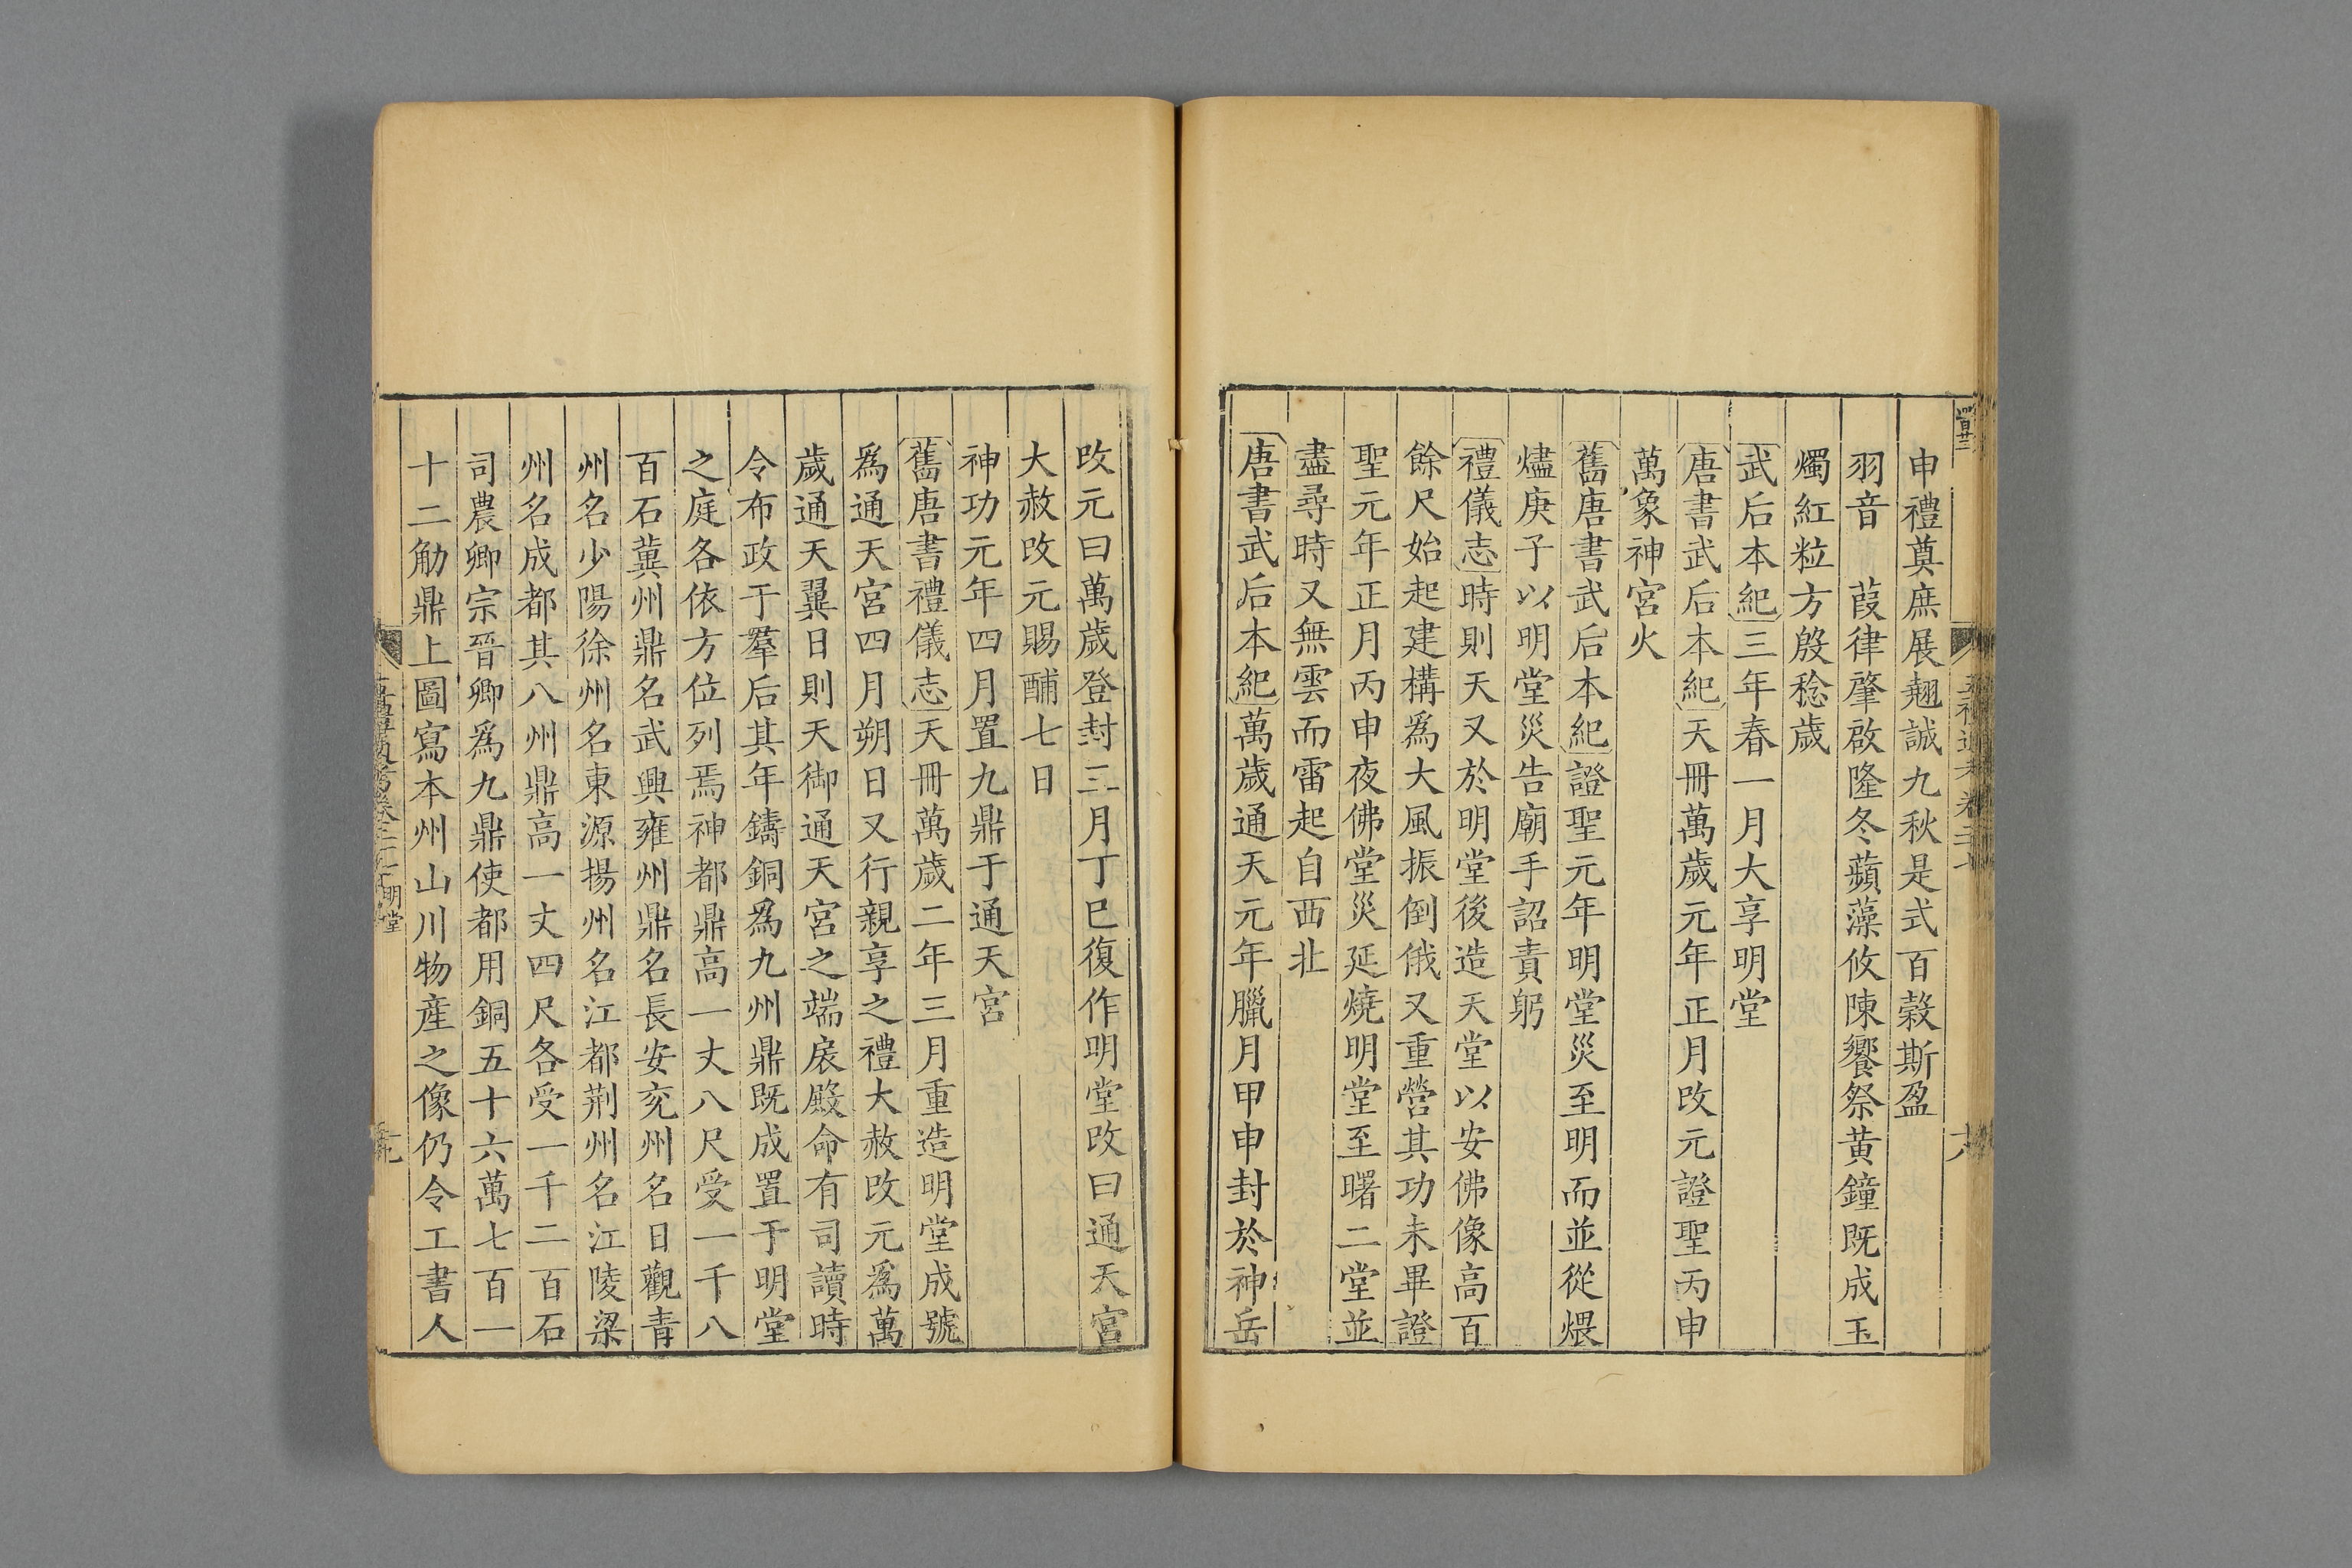 申禮奠庶展翹誠九秋是式百穀斯盈
羽音　葭律肇啟隆冬蘋藻攸陳饗祭黄鐘既成玉
燭紅粒方殷稔歲
武后本紀三年春一月大享明堂
唐書武后本紀天冊萬歲元年正月改元證聖丙申
萬象神宮火
舊唐書武后本紀證聖元年明堂災至明而並從煨
燼庚子以明堂災告廟手詔責躬
禮儀志時則天又於明堂後造天堂以安佛像高百
餘尺始起建構爲大風振倒俄又重營其功未畢證
聖元年正月丙申夜佛堂災延燒明堂至曙二堂並
盡尋時又無雲而雷起自西北
唐書武后本紀萬歲通天元年臘月甲申封於神岳
改元曰萬歲登封三月丁巳復作明堂改曰通天宮
大赦改元賜酺七日
神功元年四月置九鼎于通天宮
舊唐書禮儀志天冊萬歲二年三月重造明堂成號
爲通天宮四月朔日又行親享之禮大赦改元爲萬
歲通天翼日則天御通天宮之端扆殿命有司讀時
令布政于羣后其年鑄銅爲九州鼎既成置于明堂
之庭各依方位列焉神都鼎高一丈八尺受一千八
百石冀州鼎名武興雍州鼎名長安兖州名日觀青
州名少陽徐州名東源揚州名江都荆州名江陵梁
州名成都其八州鼎高一丈四尺各受一千二百石
司農卿宗晉卿爲九鼎使都用銅五十六萬七百一
十二觔鼎上圖寫本州山川物産之像仍令工書人
明堂